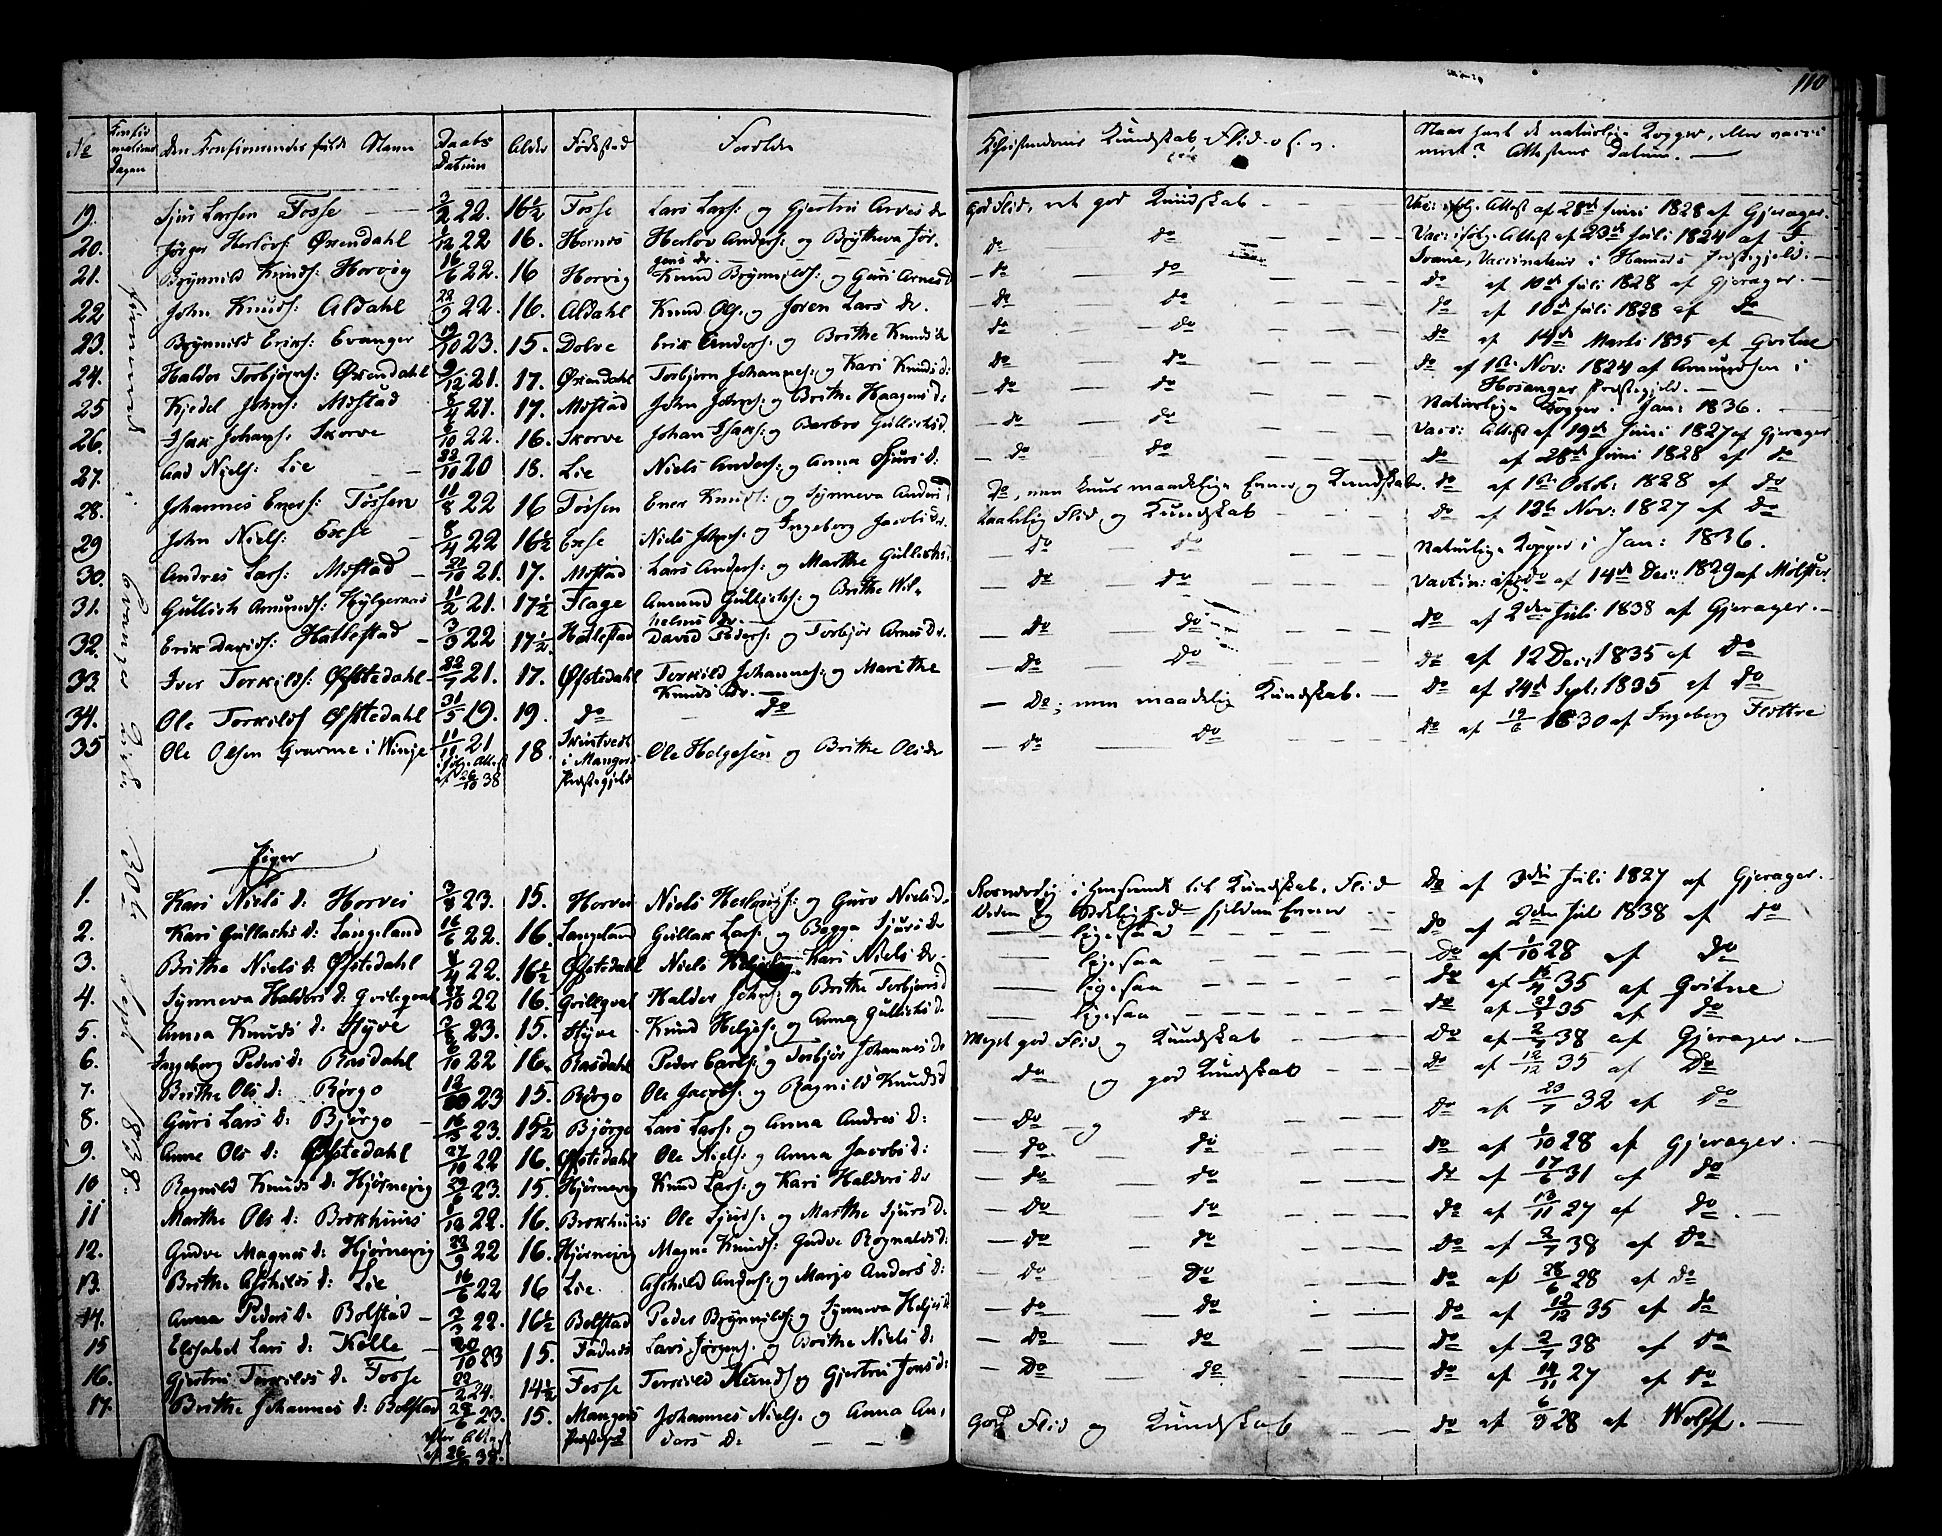 110
No Confirmations Dagen Den Confirmeredes fulde Navn Daabs Datum Alder Fødested Forældre Christendoms Kundskab, Flid o. s. v. Naar havt de naturlige Kopper, eller vaccineret? Attestens Datum.
Confirmerede i Evanger Kirke 30te Sept 1838.
19. Sjur Larsen Fosse 22. 16½ Fosse Lars Lars: og Gjertru Arves dr God Flid, ret god Kundskab Vac: ifølg. Attest af 28de Juni 1828 af Gjerager.
20. Jørgen Herlovs: Øxendahl 22 16. Hornes Herlov Anders: og Brytheva Jørgens dr. do do Vacc: ifølg. Attest af 23de Juli 1824 af
21. Brynnild Knuds: Horvig 16/6 22. 16 Horvig Knud Brynnilds: og Guri Arnes d do do do af 10de Juli 1828 af Gjerager.
22 John Knuds: Aldahl 22/9 22. 16. Aldahl Knud Ols: og Joren Lars dr. do do do af 10de Juli 1828 af do
23. Brynnild Eriks: Evanger 19/10 23. 15. Dolve Erik Anders: og Brithe Knuds dr do do do af 14de Marts 1835 af Gvitne
24. Haldor Torbjørns: Øxendahl 9/12 21. 17. Øxendahl Torbjørn Johannes: og Kari Knuds d: do do do af 1ste Nov: 1824 af Amundsen i Hosanger Præstegjeld.
25 Kjedel Johns: Møstad 21. 17. Møstad John Johns: og Brithe Haagens d: do do Naturlige Kopper i Jan: 1836.
26. Isak Johans: Skorve 22. 16. Skorve Johan Isaks: og Barbro Gullichsd. do do Vacc: Attest af 19de Juni 1827 af Gjerager
27. Aad Niels: Lie 22/10 20 18. Lie Niels Anders: og Anna Sjurs d: do do do af 28de Juni 1828 af do
28. Johannes Eners: Fossen 22 16 Fossen Ener Knuds: og Synneva Anders d Do, men kuns maadelige Evner og Kundskab. do af 1ste Octob: 1828 af do
29 John Niels: Exse 8/4 22 16½ Exse Niels Johns: og Ingeborg Jacobs dr. taalelig Flid og Kundskab do af 12te Nov: 1827 af do
30. Andres Lars: Møstad 21. 17. Møstad Lars Anders: og Marthe Gullichs d: do do Naturlige Kopper i Jan: 1836.
31. Gullich Amunds: 11/2 21. 17½ Flage Amund Gullichs: og Brithe Wilhelms dr. do do Vaccin: af 14de Dec: 1829 af Mølster
32. Erik Davids: Hallestad 3/3 22 17½ Hallestad David Peders: og Torbjør Arnes dr. do do do af 2den Juli 1838 af Gjerager.
33. Iver Torkilds: Øfstedahl 22/7 21. 17. Øfstedahl Torkild Johannes: og Marithe Knuds dr. do do do af 12 Dec: 1835 af do
34. Ole Torkilds Øfstedahl 31/5 19. 19. do do Do; men maadelig Kundskab. do af 24de Sept: 1835 af do
35 Ole Olsen i Winje 11/11 21 ifølg. Attest af 26/10 38 18 i Mangers Præstegjeld Ole Helgesen og Brithe Ols dr do do do af 19/6 1830 af Ingeborg Flettre
Piger
1. Kari Niels d: Horvei 23. 15. Horvei Niels Herlovs: og Guro Niels d. Roesværdig i Henseende til Kundskab, Flid do af 3die Juli 1827 af Gjerager.
2. Kari Gullachs d: Langeland 16/6 22. 16. Langeland Gullak Lars: og Begga Sjurs dr ligesaa do af 2den Juli 1838 af do
3. Brithe Niels d: Øfstedahl 22. 16½ Øfstedahl Niels Kari Niels dr. ligesaa do af 1/10 28 af do
4. Synneva Haldors d: 22 16. Haldor Johns: og Brithe Torbjørns d ligesaa do af 35 af Gvitne
5. Anna Knuds d: Hyve 23. 15. Hyve Knud Helges: og Anna Gullichs d. ligesaa do af 35 af do
6. Ingeborg Peders d: Rasdahl 22 16. Rasdahl Peder Carls: og Torbjør Johannes d: Meget god Flid og Kundskab do af 2/7 38 af Gjerager.
7. Brithe Ols d: Børgo 23 15. Børgo Ole Jacobs: og Ragnild Knuds d do og god Kundskab do af 12/12 35 af Do
8. Guri Lars d: Bjørgo 23. 15½ Bjørgo Lars Lars: og Anna Andres d: do og do do af 23/7 32 af do
9. Anne Ols d: Øfstedahl 27/10 22 16. Øfstedahl Ole Niels: og Anna Jacobs d: do do do af 1/10 28 af Gjerager.
10 Ragnild Knuds d: Hjørnevig 23. 15. Hjørnevig Knud Lars: og Kari Haldors dr do do do af 17/6 31 af do
11 Marthe Ols d: Brekhuus 22. 16. Brekhuus Ole Sjurds: og Marthe Sjurs d: do do do af 13/11 27 af do
12. Gudve Magnes d: Hjørnevig 23/9 22 16. Hjørnevig Magne Knuds: Gudve Rognalds d: do do do af 2/7 38 af do
13. Brithe Aschilds d: Lie 16/6 22 16 Lie Aschild Anders: og Marjo Anders d: do do do af 28/6 28 af do
14. Anna Peders d: Bolstad 3/3 22. 16½ Bolstad Peder Brynnilds: og Synneva Helges d do do do af 12/12 35 af do
15 Elisabet Lars d: Kølle 20/10 23 15. Fadnes Lars Jørgens: og Brithe Niels d: do do do af 2/7 38 af do
16. Gjertru Torkilds d: Fosse 22/2 24. 14½ Fosse Torkild Knuds og Gjertru Jons d: do do do af 14/11 27 af do
17. Brithe Johannes d: Bolstad 29/6 23. efter Attest af 26 38. 15. Mangers Præstegjd Johannes Niels: og Anna Anders d: God Flid og Kundskab do af 6/9 28 af Wolff.